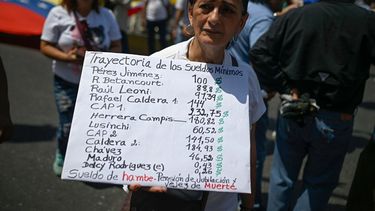 Trayectoria de los Sueldos Mínimos
Pérez Jiménez: 100 $
R Betancourt: 88,8 $
Raúl Leoni: $
Rafael Caldera 1: 144 $
CAP 1: 332,75 $
Herrera Campis— 180,82 $
Lusinchi: 60,52 $
CAP 2: 141,50 $
Caldera 2: 184,93 $
Chávez 46,52 $
Maduro 0,43 $
Delcy Rodríguez (e) 0,26 $
Sueldo de hambe-Pensión de Jubilación y
Vejez de Muerte